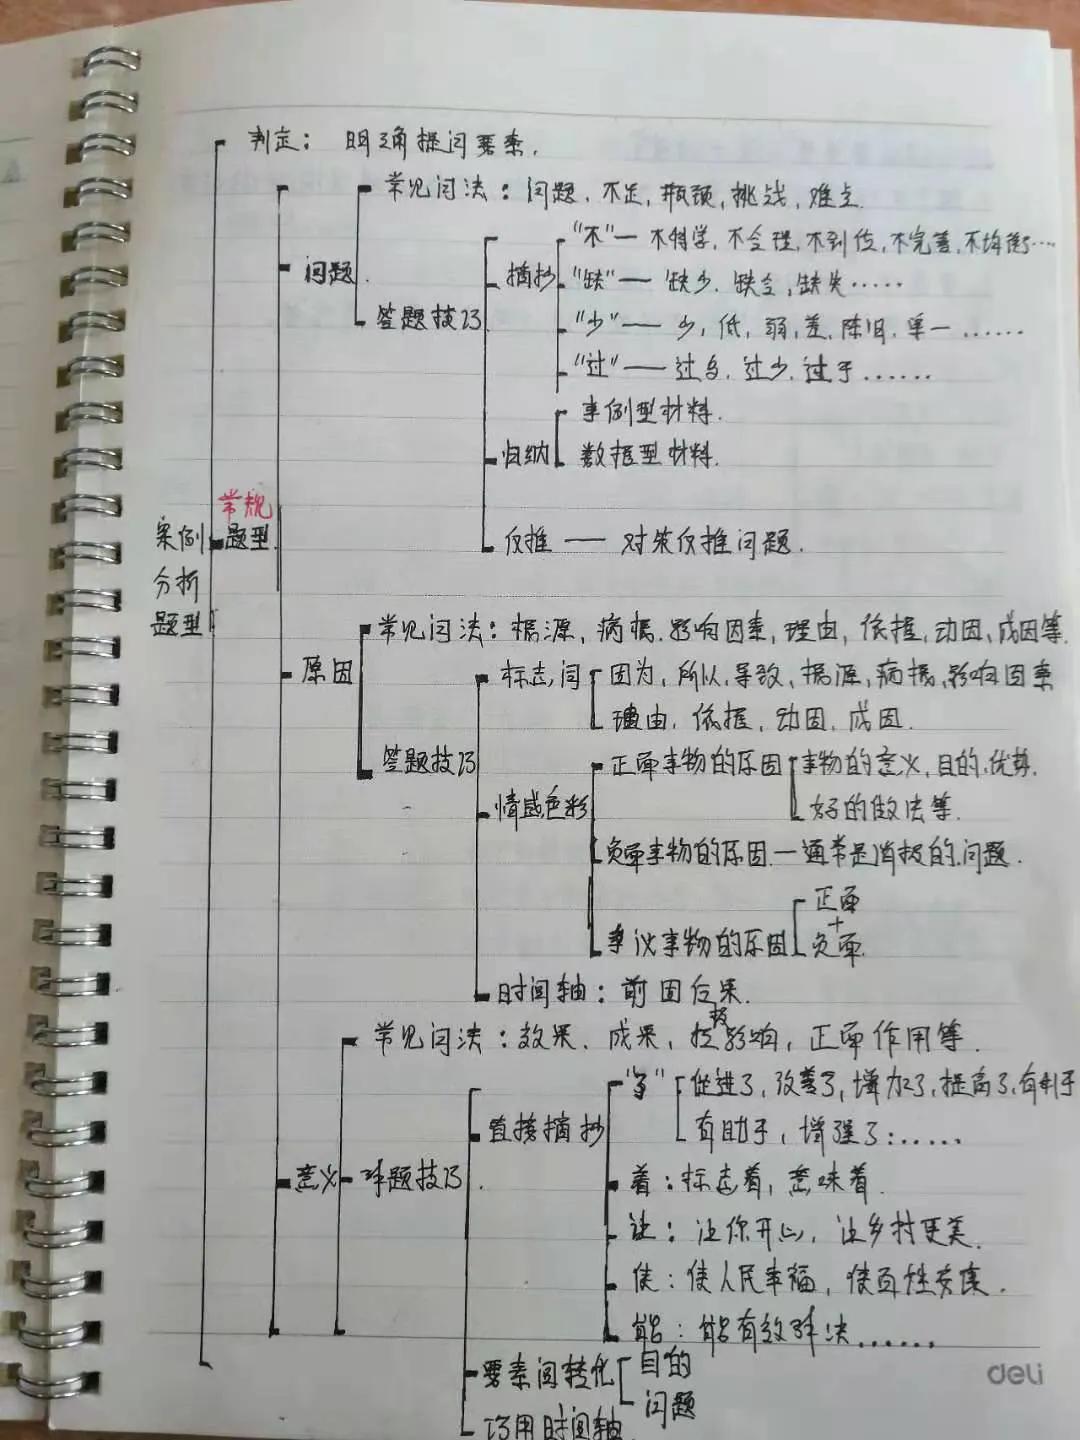 判定：明确提问要素.
常见问法：问题、不足,瓶颈,挑战,难点.
"不"— 不科学,不合理,不到位,不完善,不均衡…
问题.
摘抄
"缺"— 缺少.缺乏,缺失……
答题技巧
"少"— 少,低,弱,差,陈旧.单一……
"过"— 过多.过少.过于……
事例型材料.
归纳
数据型材料.
常规
案例
题型.
反推 — 对策反推问题.
分析
题型
常见问法：根源,病根.影响因素,理由,依据,动因,成因等.
原因
标志词
因为,所以,导致,根源,病根,影响因素
理由.依据,动因,成因.
答题技巧
正面事物的原因
事物的意义,目的,优势.
情感色彩
好的做法等.
负面事物的原因 — 通常是消极的问题.
正面
+
争议事物的原因
负面
时间轴：前因后果.
常见问法：效果、成果,积极影响,正面作用等.
"了"
促进了,改善了,增加了,提高了,有利于
直接摘抄
有助于,增强了……
意义
答题技巧.
着：标志着,意味着.
让：让你开心,让乡村更美.
使：使人民幸福,使百姓安康.
能：能有效解决……
要素间转化
目的
问题
巧用时间轴.
deli